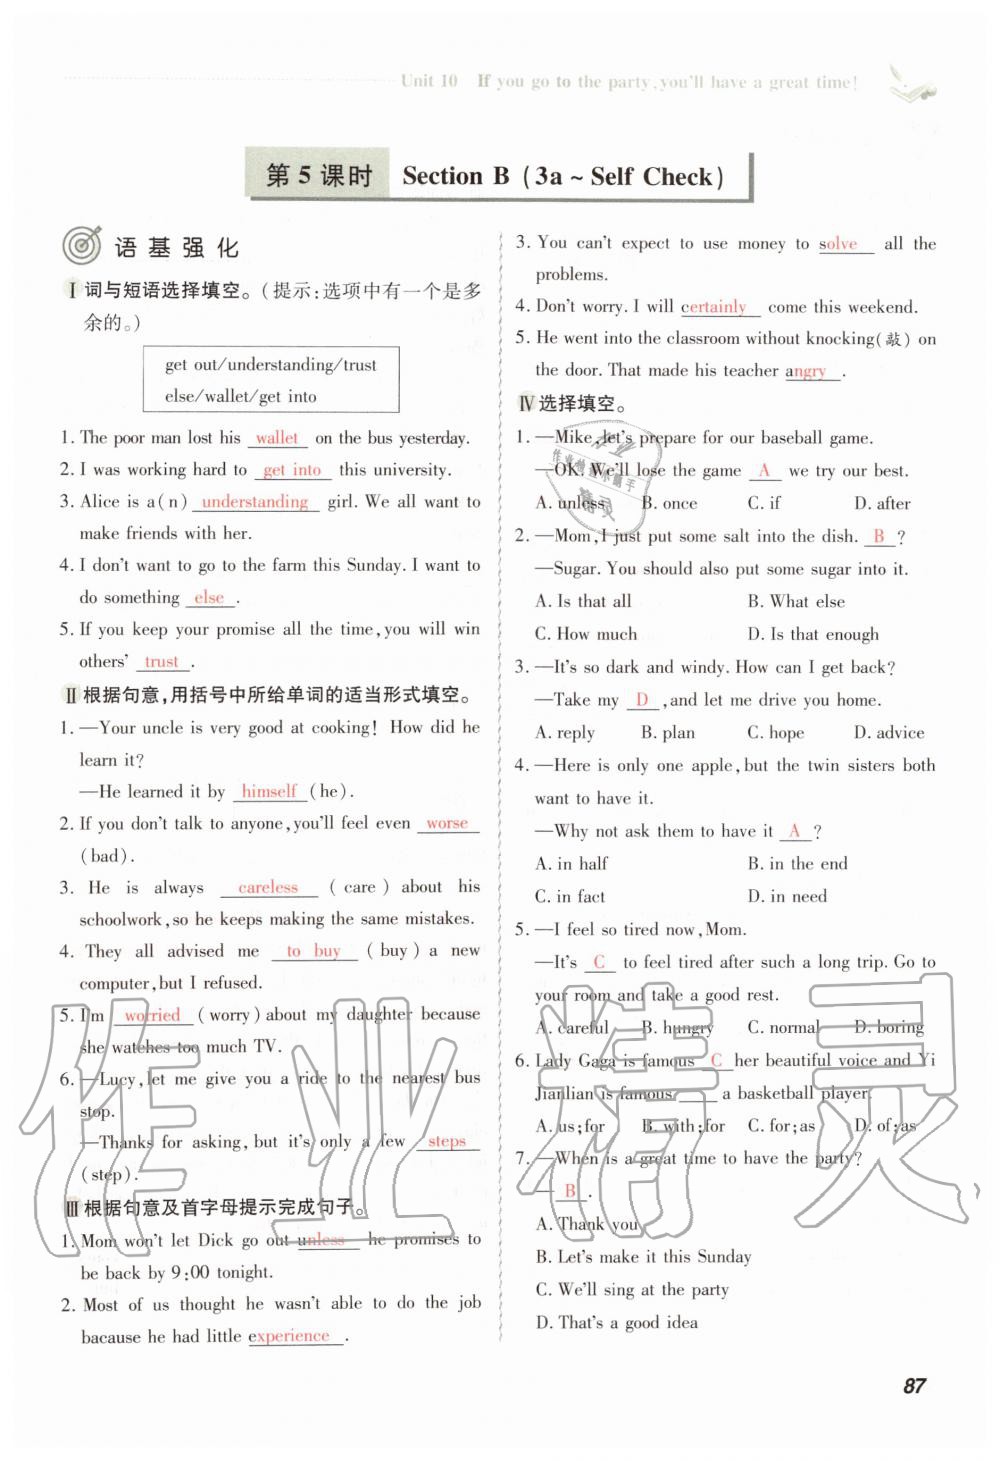 Unit 10 If you go to the party, you'll have a great time!
第 5 课时 Section B (3a ~ Self Check)
语基强化
Ⅰ 词与短语选择填空。(提示:选项中有一个是多
余的。)
get out/understanding/trust
else/wallet/get into
1. The poor man lost his wallet on the bus yesterday.
2. I was working hard to get into this university.
3. Alice is a(n) understanding girl. We all want to
make friends with her.
4. I don't want to go to the farm this Sunday. I want to
do something else .
5. If you keep your promise all the time, you will win
others' trust .
Ⅱ 根据句意,用括号中所给单词的适当形式填空。
1. —Your uncle is very good at cooking! How did he
learn it?
—He learned it by himself (he).
2. If you don't talk to anyone, you'll feel even worse
(bad).
3. He is always careless (care) about his
schoolwork, so he keeps making the same mistakes.
4. They all advised me to buy (buy) a new
computer, but I refused.
5. I'm worried (worry) about my daughter because
she watches too much TV.
6. —Lucy, let me give you a ride to the nearest bus
stop.
—Thanks for asking, but it's only a few steps
(step).
Ⅲ 根据句意及首字母提示完成句子。
1. Mom won't let Dick go out unless he promises to
be back by 9:00 tonight.
2. Most of us thought he wasn't able to do the job
bacause he had little experience .
3. You can't expect to use money to solve all the
problems.
4. Don't worry. I will certainly come this weekend.
5. He went into the classroom without knocking(敲) on
the door. That made his teacher angry .
Ⅳ 选择填空。
1. —Mike, let's prepare for our baseball game.
—OK. We'll lose the game A we try our best.
A. unless B. once C. if D. after
2. —Mom, I just put some salt into the dish. B ?
—Sugar. You should also put some sugar into it.
A. Is that all B. What else
C. How much D. Is that enough
3. —It's so dark and windy. How can I get back?
—Take my D , and let me drive you home.
A. reply B. plan C. hope D. advice
4. —Here is only one apple, but the twin sisters both
want to have it.
—Why not ask them to have it A ?
A. in half B. in the end
C. in fact D. in need
5. —I feel so tired now, Mom.
—It's C to feel tired after such a long trip. Go to
your room and take a good rest.
A. careful B. hungry C. normal D. boring
6. Lady Gaga is famous C her beautiful voice and Yi
Jianlian is famous ____ a basketball player.
A. us;for B. with;for C. for;as D. of;as
7. —When is a great time to have the party?
— B .
A. Thank you
B. Let's make it this Sunday
C. We'll sing at the party
D. That's a good idea
87
作业精灵